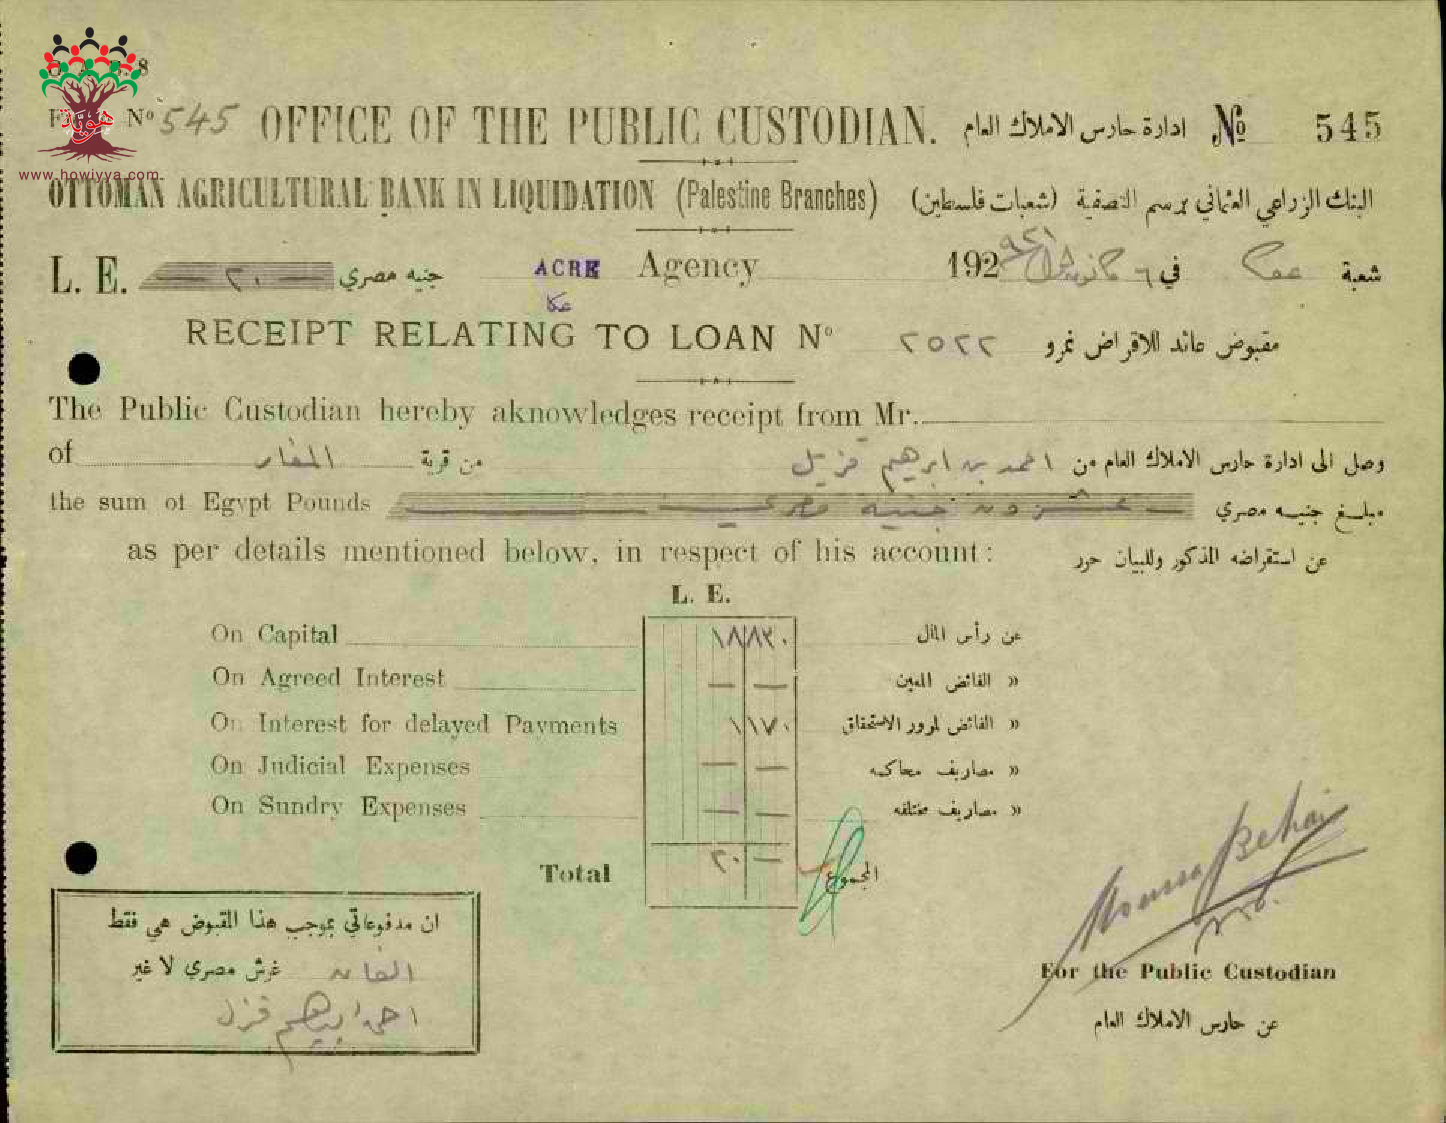 هوية
www.howiyya.com
Nº 545 OFFICE OF THE PUBLIC CUSTODIAN. ادارة حارس الاملاك العام Nº 545
OTTOMAN AGRICULTURAL BANK IN LIQUIDATION (Palestine Branches) البنك الزراعي العثماني برسم التصفية (شعبات فلسطين)
L. E. ٢٠ جنيه مصري ACRE Agency 192 ٩٢١ في ٦ عكا شعبة
عكا
RECEIPT RELATING TO LOAN Nº ٢٥٢٢ مقبوض عائد للاقراض نمرو
The Public Custodian hereby aknowledges receipt from Mr.
of المغار من قرية وصل الى ادارة حارس الاملاك العام من احمد بن ابرهيم قزيل
the sum of Egypt Pounds عشرون جنيه مصري مبلغ جنيه مصري
as per details mentioned below, in respect of his account: عن استقراضه المذكور وللبيان حرر
L. E.
On Capital ١٨ ٨٣٠ عن رأس المال
On Agreed Interest — — » الفائض المعين
On Interest for delayed Payments ١ ١٧٠ » الفائض لمرور الاستحقاق
On Judicial Expenses — — » مصاريف محاكمه
On Sundry Expenses — — » مصاريف مختلفه
Total ٢٠ — المجموع
ان مدفوعاتي بموجب هذا المقبوض هي فقط
الفان غرش مصري لا غير
احمد ابرهيم قزل
Moussa Behai
For the Public Custodian
عن حارس الاملاك العام